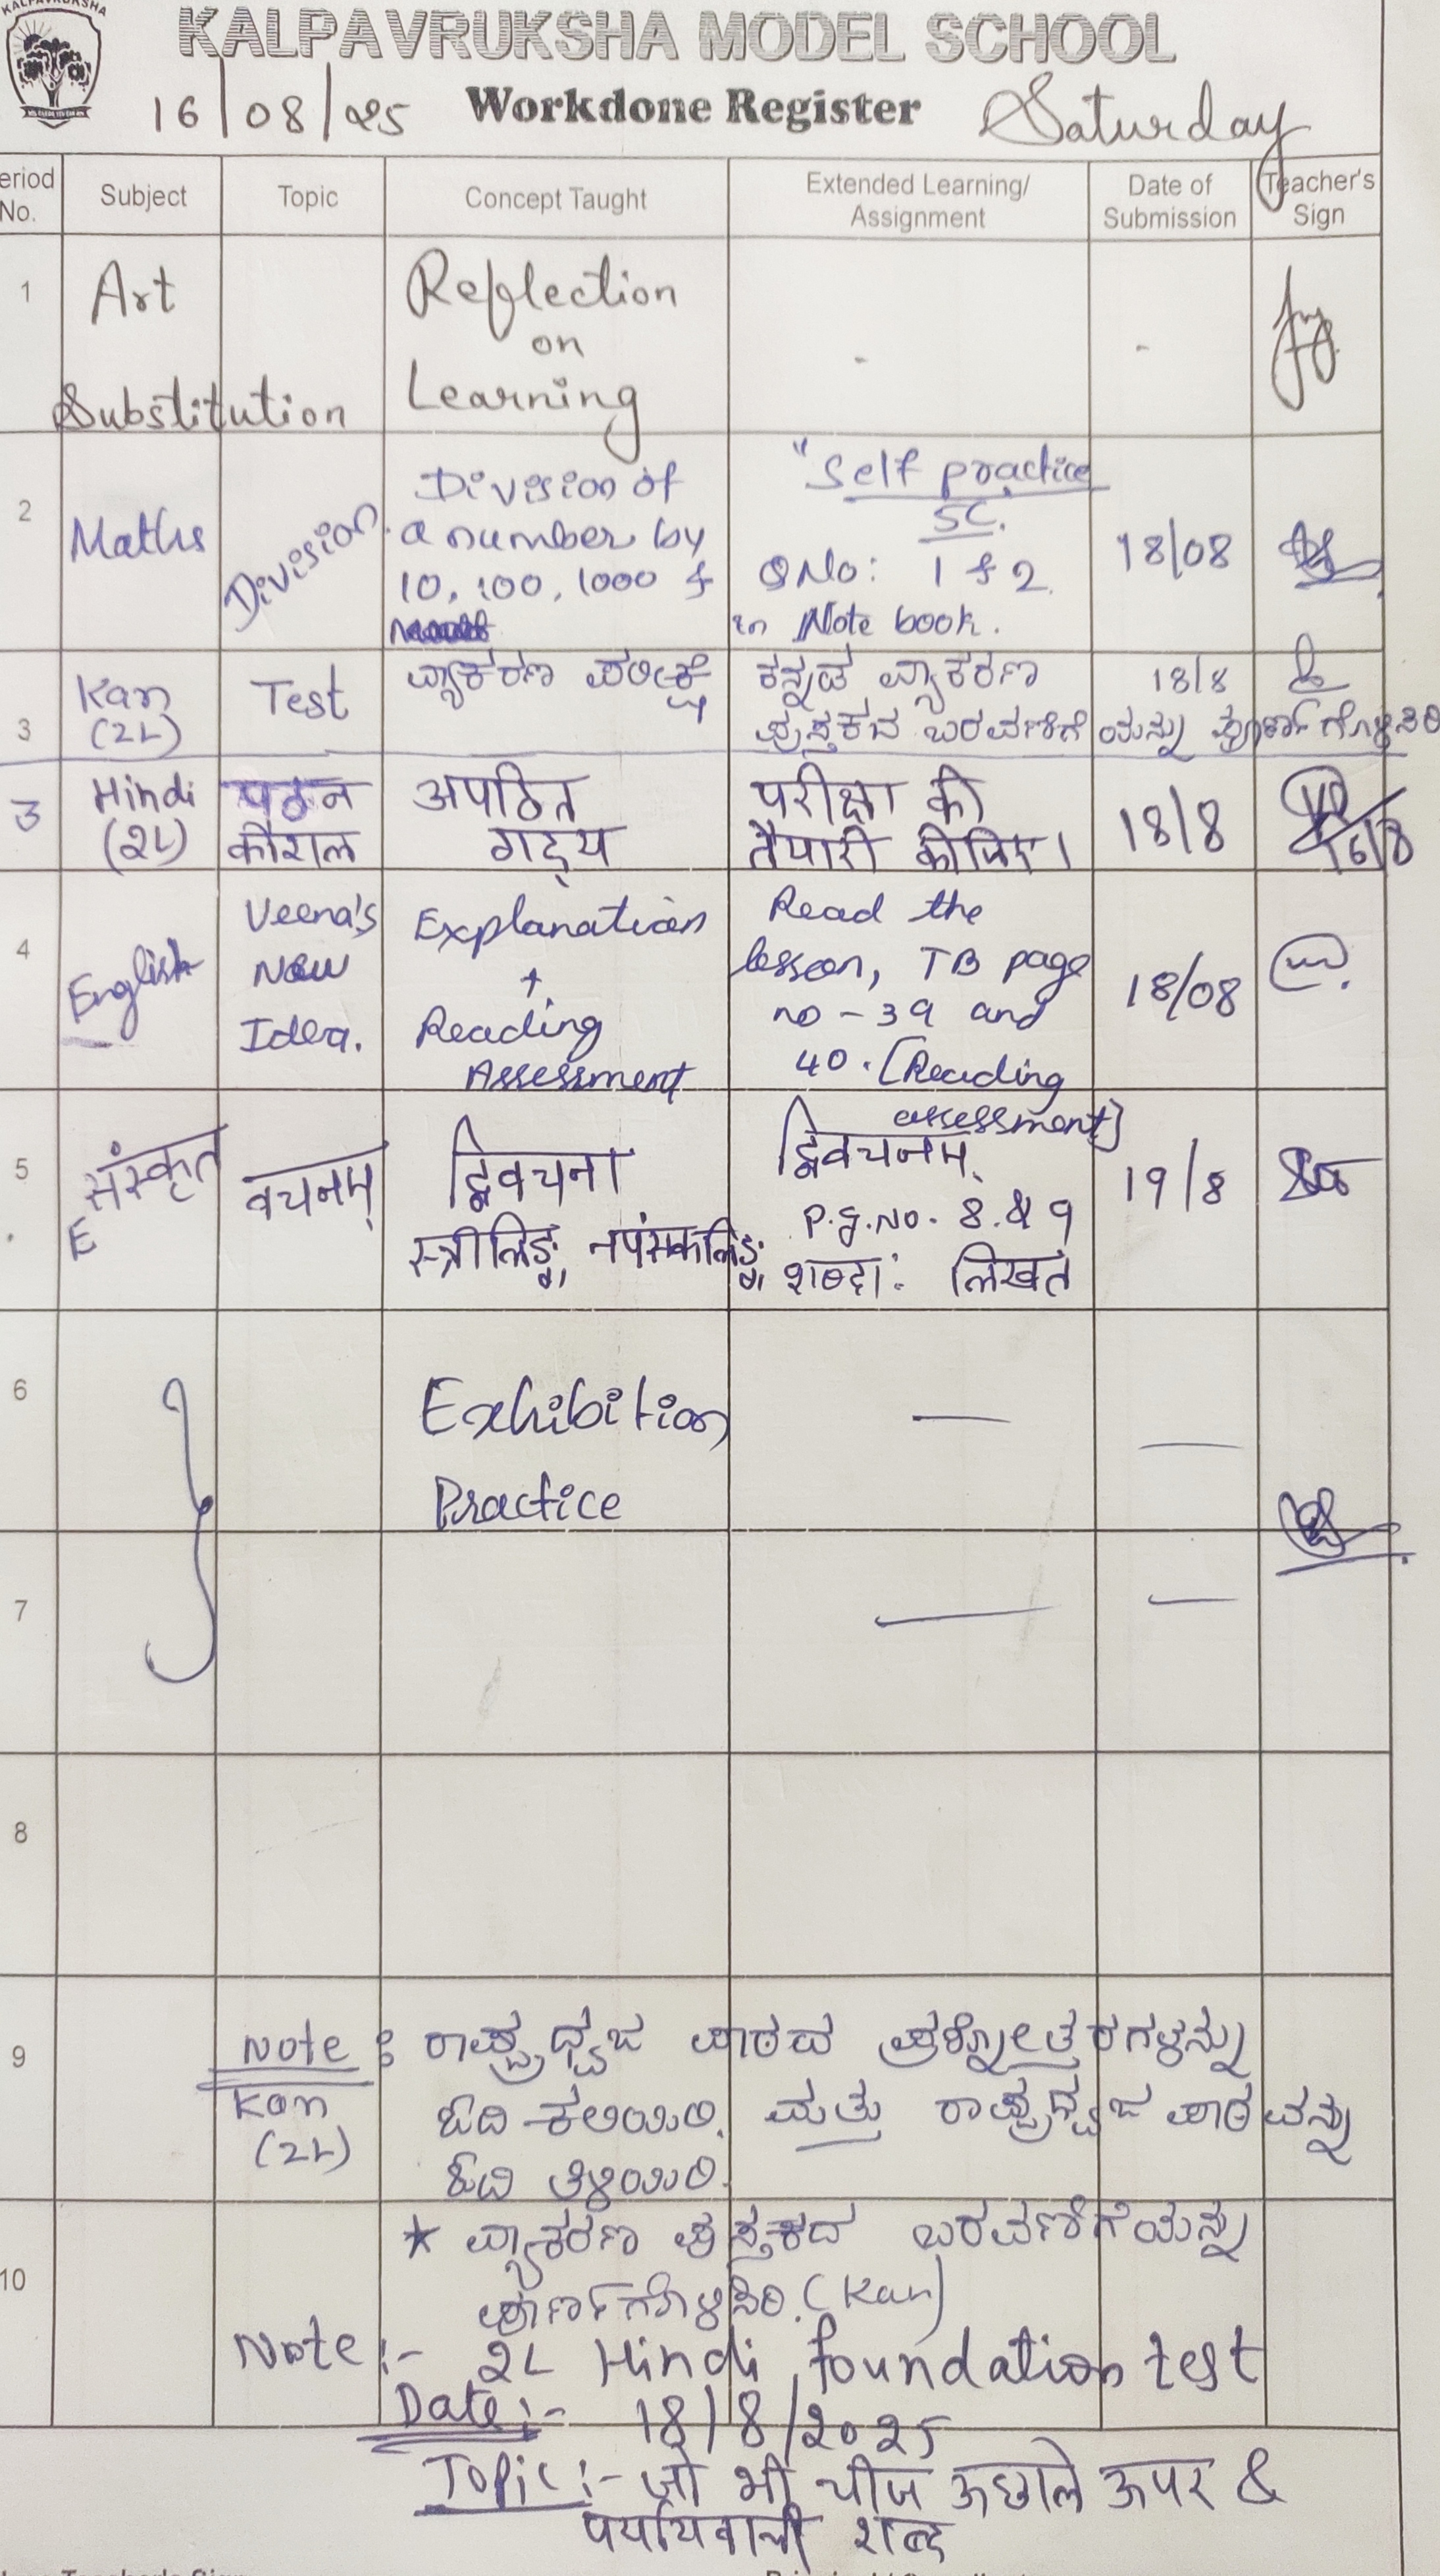 KALPAVRUKSHA
KALPAVRUKSHA MODEL SCHOOL
16/08/25 Workdone Register Saturday
eriod No. Subject Topic Concept Taught Extended Learning/ Assignment Date of Submission Teacher's Sign
1 Art Reflection
on
Learning - -
Substitution
2 Maths Division. Division of
a number by
10, 100, 1000 &
"Self practice
5C.
Q No: 1 & 2.
in Note book.
18/08
3 Kan
(2L)
Test
ವ್ಯಾಕರಣ ಪರೀಕ್ಷೆ
ಕನ್ನಡ ವ್ಯಾಕರಣ 18/8
ಪುಸ್ತಕದ ಬರವಣಿಗೆಯನ್ನು ಪೂರ್ಣಗೊಳಿಸಿರಿ
3 Hindi
(2L)
पठन
कौशल
अपठित
गद्य
परीक्षा की
तैयारी कीजिए।
18/8
16/8
4 English
Veena's
New
Idea.
Explanation
+
Reading
Assessment
Read the
lesson, TB page
no - 39 and
40. [Reading
assessment]
18/08
5 संस्कृत
E
वचनम्
द्विवचना
स्त्रीलिङ्ग, नपंसकलिङ्ग,
द्विवचनम्
P.g.No. 8. & 9
शब्दाः लिखत
19/8
6 Exhibition
Practice
— —
7 — —
8
9 Note : ರಾಷ್ಟ್ರಧ್ವಜ ಪಾಠದ ಪ್ರಶ್ನೋತ್ತರಗಳನ್ನು
Kan
(2L)
ಓದಿ ಕಲಿಯಿರಿ. ಮತ್ತು ರಾಷ್ಟ್ರಧ್ವಜ ಪಾಠವನ್ನು
ಓದಿ ತಿಳಿಯಿರಿ.
10 * ವ್ಯಾಕರಣ ಪುಸ್ತಕದ ಬರವಣಿಗೆಯನ್ನು
ಪೂರ್ಣಗೊಳಿಸಿರಿ. (Kan)
Note :- 2L Hindi foundation test
Date :- 18/8/2025
Topic :- जो भी चीज ऊछाले ऊपर &
पर्यायवाची शब्द